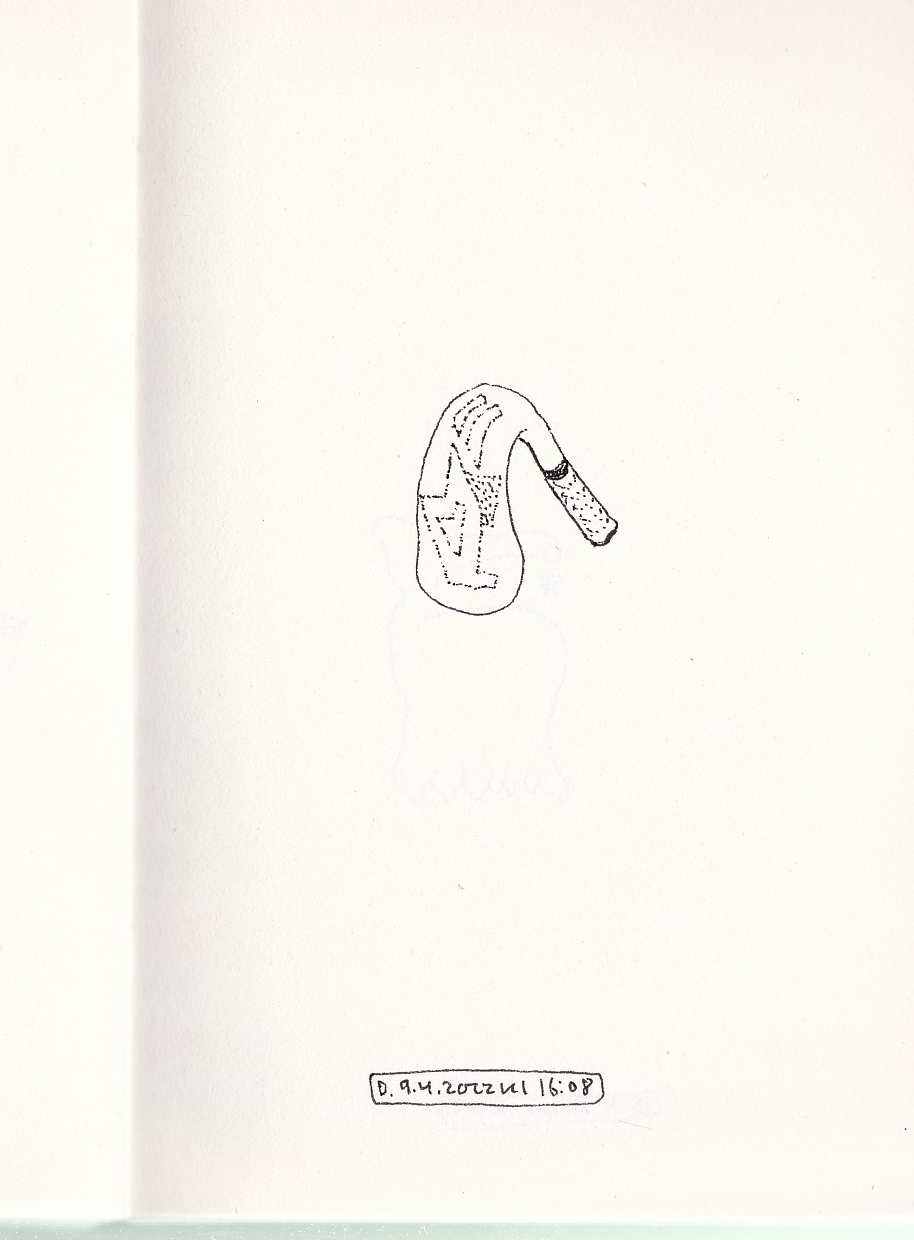 D. 9.4.2022 kl 16:08